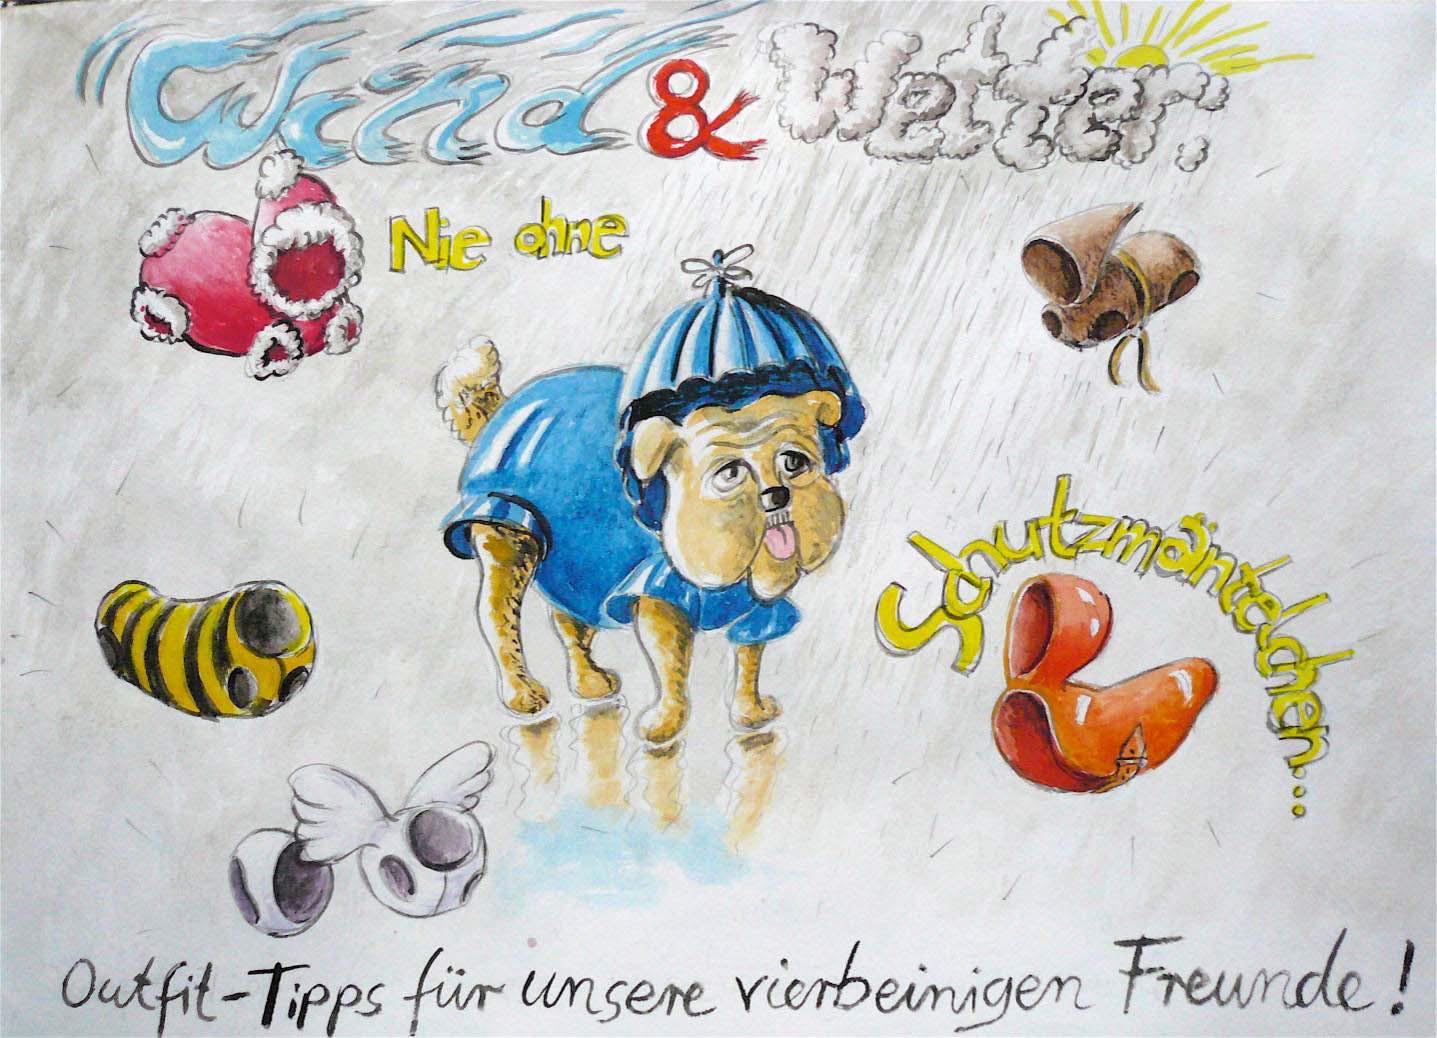 Wind & Wetter:
Nie ohne
Schutzmäntelchen...
Outfit-Tipps für unsere vierbeinigen Freunde!